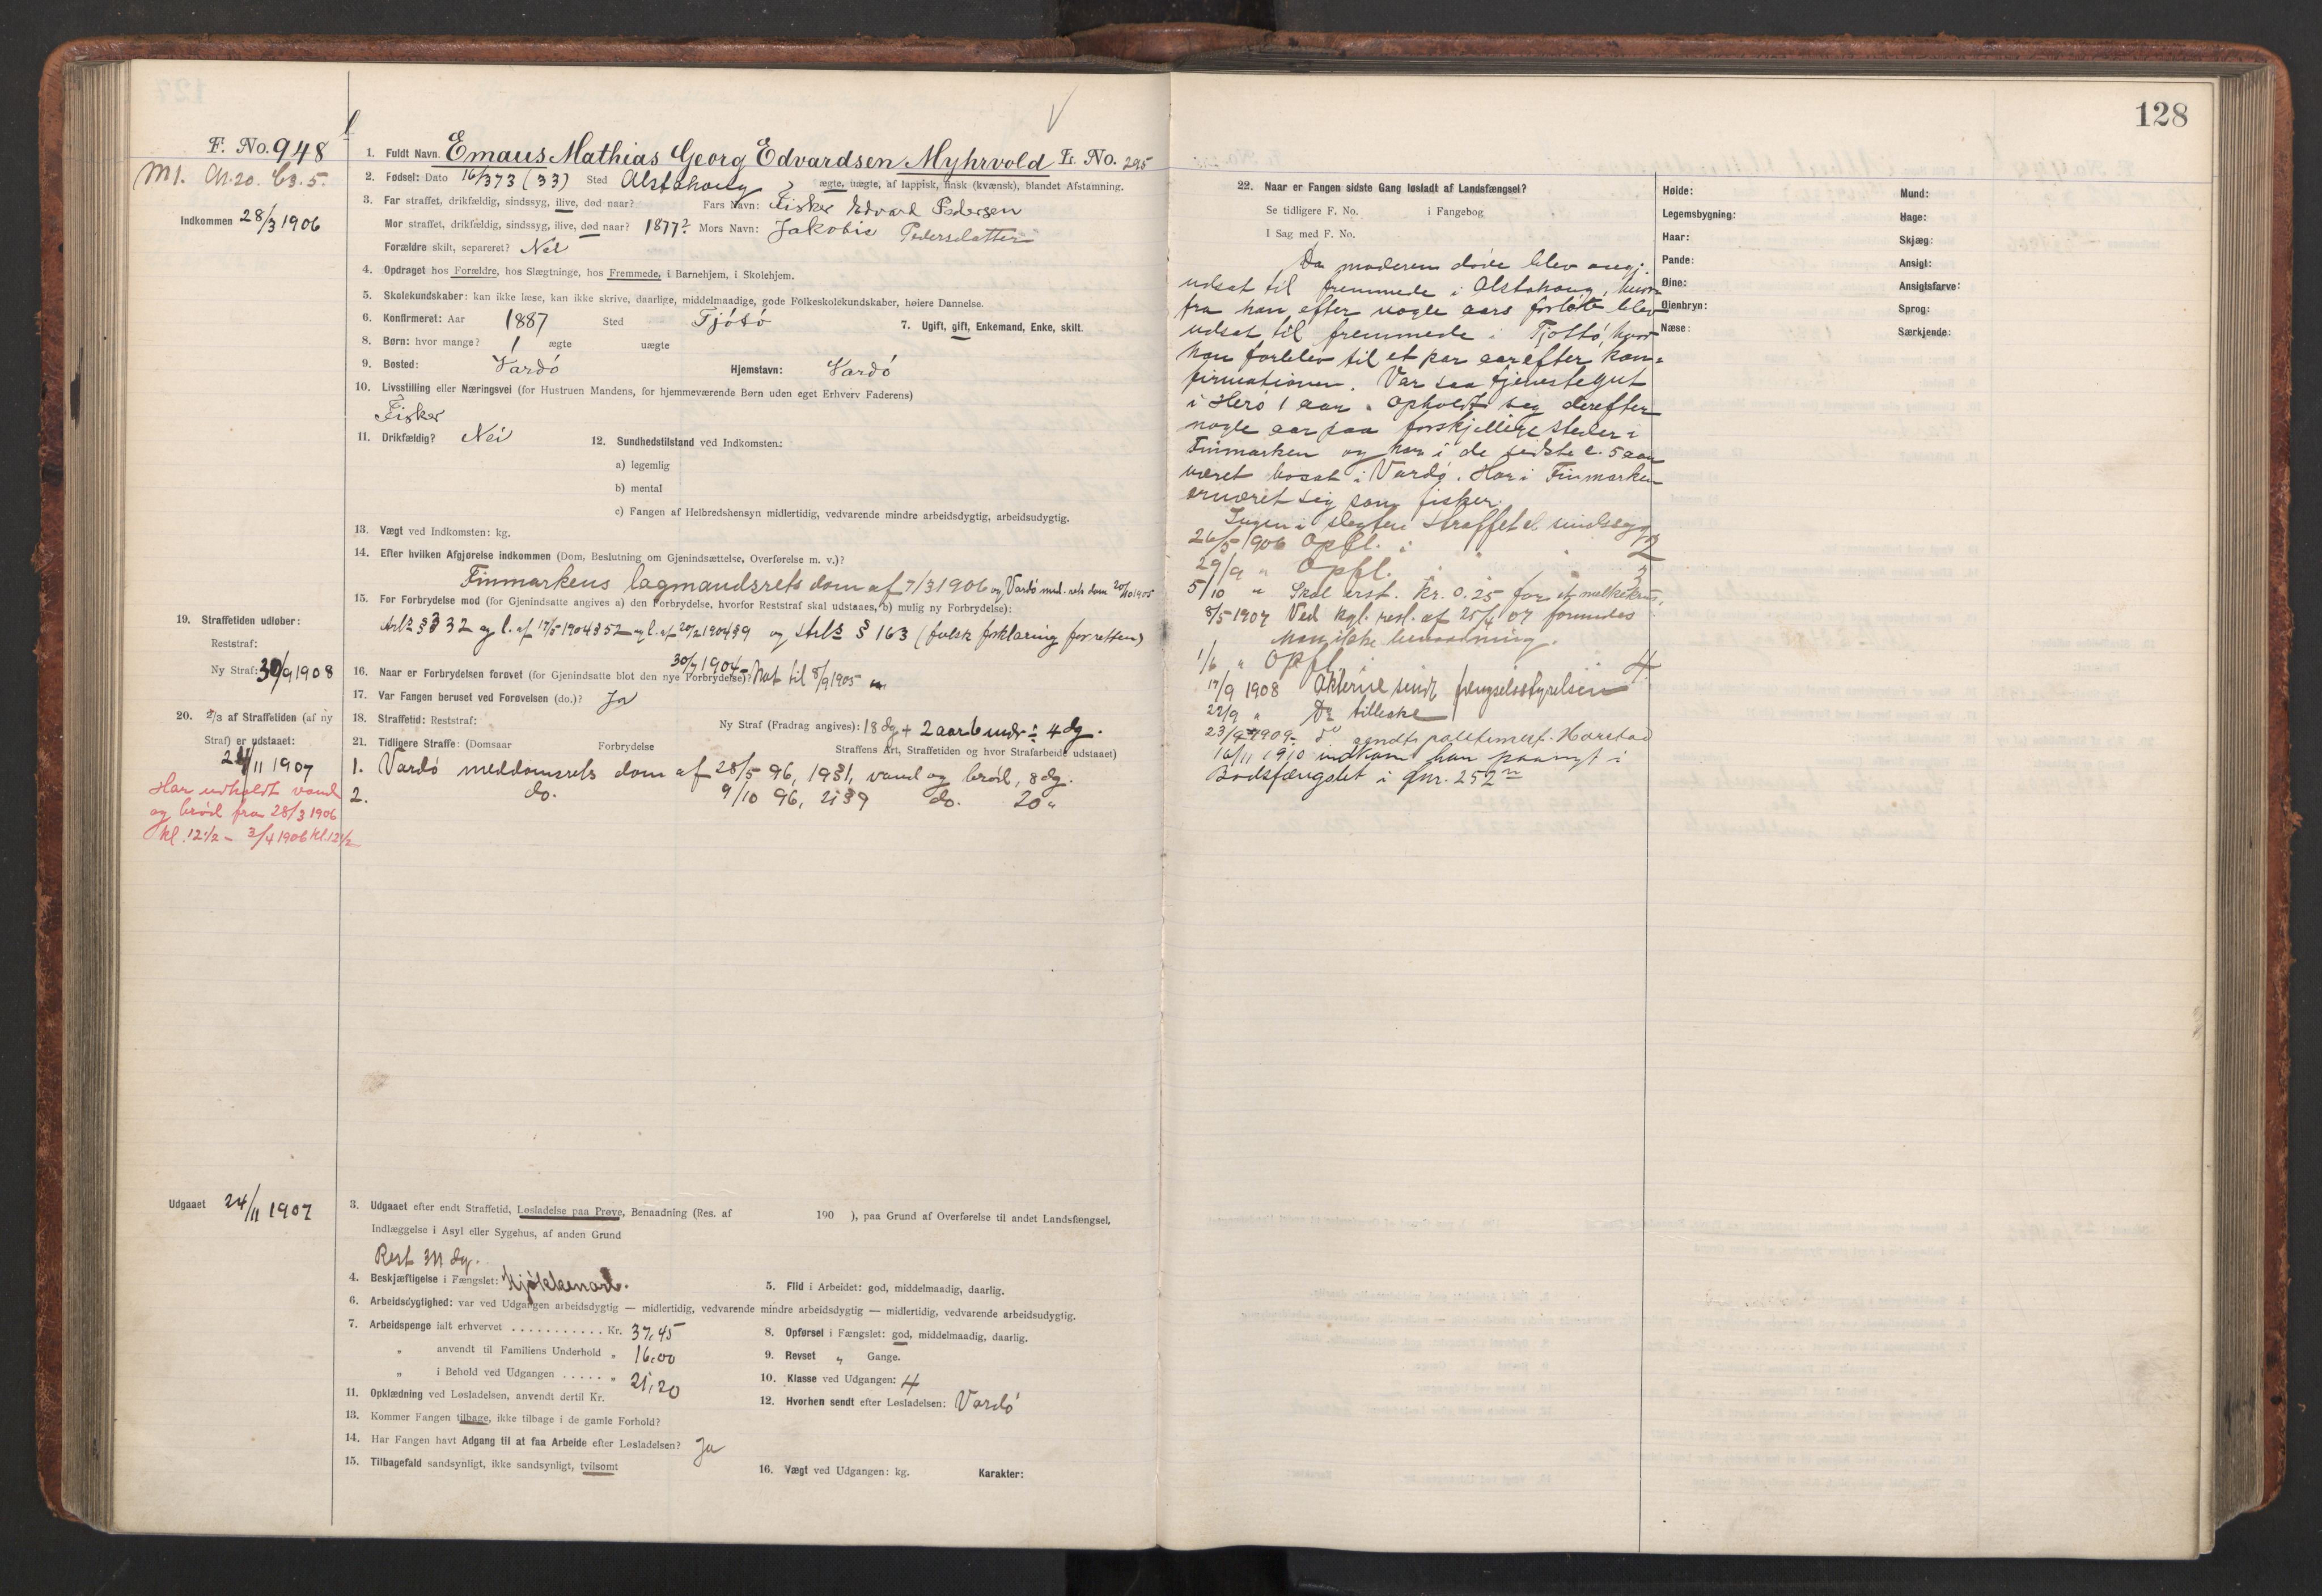 128
F. No. 948
M1. Ch.20. C3.5.
Indkommen 28/3 1906
1. Fuldt Navn. Emaus Mathias Georg Edvardsen Myhrvold Fr. No. 295
2. Fødsel: Dato 16/3 73 (33) Sted Alstahoug ægte, uægte, af lappisk, finsk (kvænsk), blandet Afstamning.
3. Far straffet, drikfældig, sindssyg, ilive, død naar? Fars Navn: Fisker Edvard Pedersen
Mor straffet, drikfældig, sindssyg, ilive, død naar? 1877? Mors Navn: Jakobie Pedersdatter
Forældre skilt, separeret? Nei
4. Opdraget hos Forældre, hos Slægtninge, hos Fremmede, i Barnehjem, i Skolehjem.
5. Skolekundskaber: kan ikke læse, kan ikke skrive, daarlige, middelmaadige, gode Folkeskolekundskaber, høiere Dannelse.
6. Konfirmeret: Aar 1887 Sted Tjótó 7. Ugift, gift, Enkemand, Enke, skilt.
8. Børn: hvor mange? 1 ægte uægte
9. Bosted: Vardó Hjemstavn: Vardó
10. Livsstilling eller Næringsvei (for Hustruen Mandens, for hjemmeværende Børn uden eget Erhverv Faderens)
Fisker
11. Drikfældig? Nei 12. Sundhedstilstand ved Indkomsten:
a) legemlig
b) mental
c) Fangen af Helbredshensyn midlertidig, vedvarende mindre arbeidsdygtig, arbeidsudygtig.
13. Vægt ved Indkomsten: kg.
14. Efter hvilken Afgjørelse indkommen (Dom, Beslutning om Gjenindsættelse, Overførelse m. v.)?
Finmarkens lagmandsrets dom af 7/3 1906 og Vardó med. rets dom 20/10 1905
15. For Forbrydelse mod (for Gjenindsatte angives a) den Forbrydelse, hvorfor Reststraf skal udstaaes, b) mulig ny Forbrydelse):
§ 332 og l. af 17/5 1904 § 52 og l. af 20/2 1904 § 9 og § 163 (falsk forklaring for retten)
19. Straffetiden udløber:
Reststraf:
Ny Straf: 30/9 1908
16. Naar er Forbrydelsen forøvet (for Gjenindsatte blot den nye Forbrydelse)? 30/7 1904 Nat til 8/9 1905
17. Var Fangen beruset ved Forøvelsen (do.)? Ja
20. 2/3 af Straffetiden (af ny
Straf) er udstaaet:
24/11 1907
18. Straffetid: Reststraf: Ny Straf (Fradrag angives): 18 dg + 2 aar 6 mdr ÷ 4 dg.
21. Tidligere Straffe: (Domsaar Forbrydelse Straffens Art, Straffetiden og hvor Strafarbeide udstaaet)
1. Vardó meddomsrets dom af 28/5 96, 19§1, vand og brød, 8 dg.
2. do. 9/10 96, 21§9 do. 20 "
Har udholdt vand
og brød fra 28/3 1906
kl. 12 1/2 – 3/4 1906 kl. 12 1/2
Udgaaet 24/11 1907
3. Udgaaet efter endt Straffetid, Løsladelse paa Prøve, Benaadning (Res. af 190 ), paa Grund af Overførelse til andet Landsfængsel,
Indlæggelse i Asyl eller Sygehus, af anden Grund
Rest 311 dg.
4. Beskjæftigelse i Fængslet: Kjøkkenarb. 5. Flid i Arbeidet: god, middelmaadig, daarlig.
6. Arbeidsdygtighed: var ved Udgangen arbeidsdygtig — midlertidig, vedvarende mindre arbeidsdygtig — midlertidig, vedvarende arbeidsudygtig.
7. Arbeidspenge ialt erhvervet . . . . . . . . . . . Kr. 37,45 8. Opførsel i Fængslet: god, middelmaadig, daarlig.
" anvendt til Familiens Underhold " 16,00 9. Revset " Gange.
" i Behold ved Udgangen . . . . . " 21,20 10. Klasse ved Udgangen: 4
11. Opklædning ved Løsladelsen, anvendt dertil Kr. 12. Hvorhen sendt efter Løsladelsen: Vardó
13. Kommer Fangen tilbage, ikke tilbage i de gamle Forhold?
14. Har Fangen havt Adgang til at faa Arbeide efter Løsladelsen? Ja
15. Tilbagefald sandsynligt, ikke sandsynligt, tvilsomt
16. Vægt ved Udgangen: kg. Karakter:
22. Naar er Fangen sidste Gang løsladt af Landsfængsel?
Se tidligere F. No. i Fangebog
I Sag med F. No.
Da moderen døde blev angj.
udsat til fremmede i Alstahoug, hvor-
fra han efter nogle aars forløb blev
udsat til fremmede i Tjøttó, hvor
han forblev til et par aar efter kon-
firmationen. Var saa tjenestegut
i Heró 1 aar. Opholdt seg derefter
nogle aar paa forskjellige steder i
Finmarken og har i de sidste c. 5 aar
været bosat i Vardó. Har i Finmarken
ernæret sig som fisker.
Ingen i slegten straffet el. sindssyg
26/5 1906 Opfl. i 2
29/9 " Opfl. 3
5/10 " Skal erst. kr. 0.25 for et melkekrus.
8/5 1907 Ved kgl. resl. af 25/4 07 formentes
Man ikke benaadning.
1/6 " Opfl. i 4
17/9 1908 Akterne sendt fængselsstyrelsen
22/9 " Do tilbake
23/9 1909 do sendt politimest. Harstad
16/11 1910 indkom han paanyt i
Bodsfængslet i fnr. 252
Høide:
Legemsbygning:
Haar:
Pande:
Øine:
Øienbryn:
Næse:
Mund:
Hage:
Skjæg:
Ansigt:
Ansigtsfarve:
Sprog:
Særkjende: